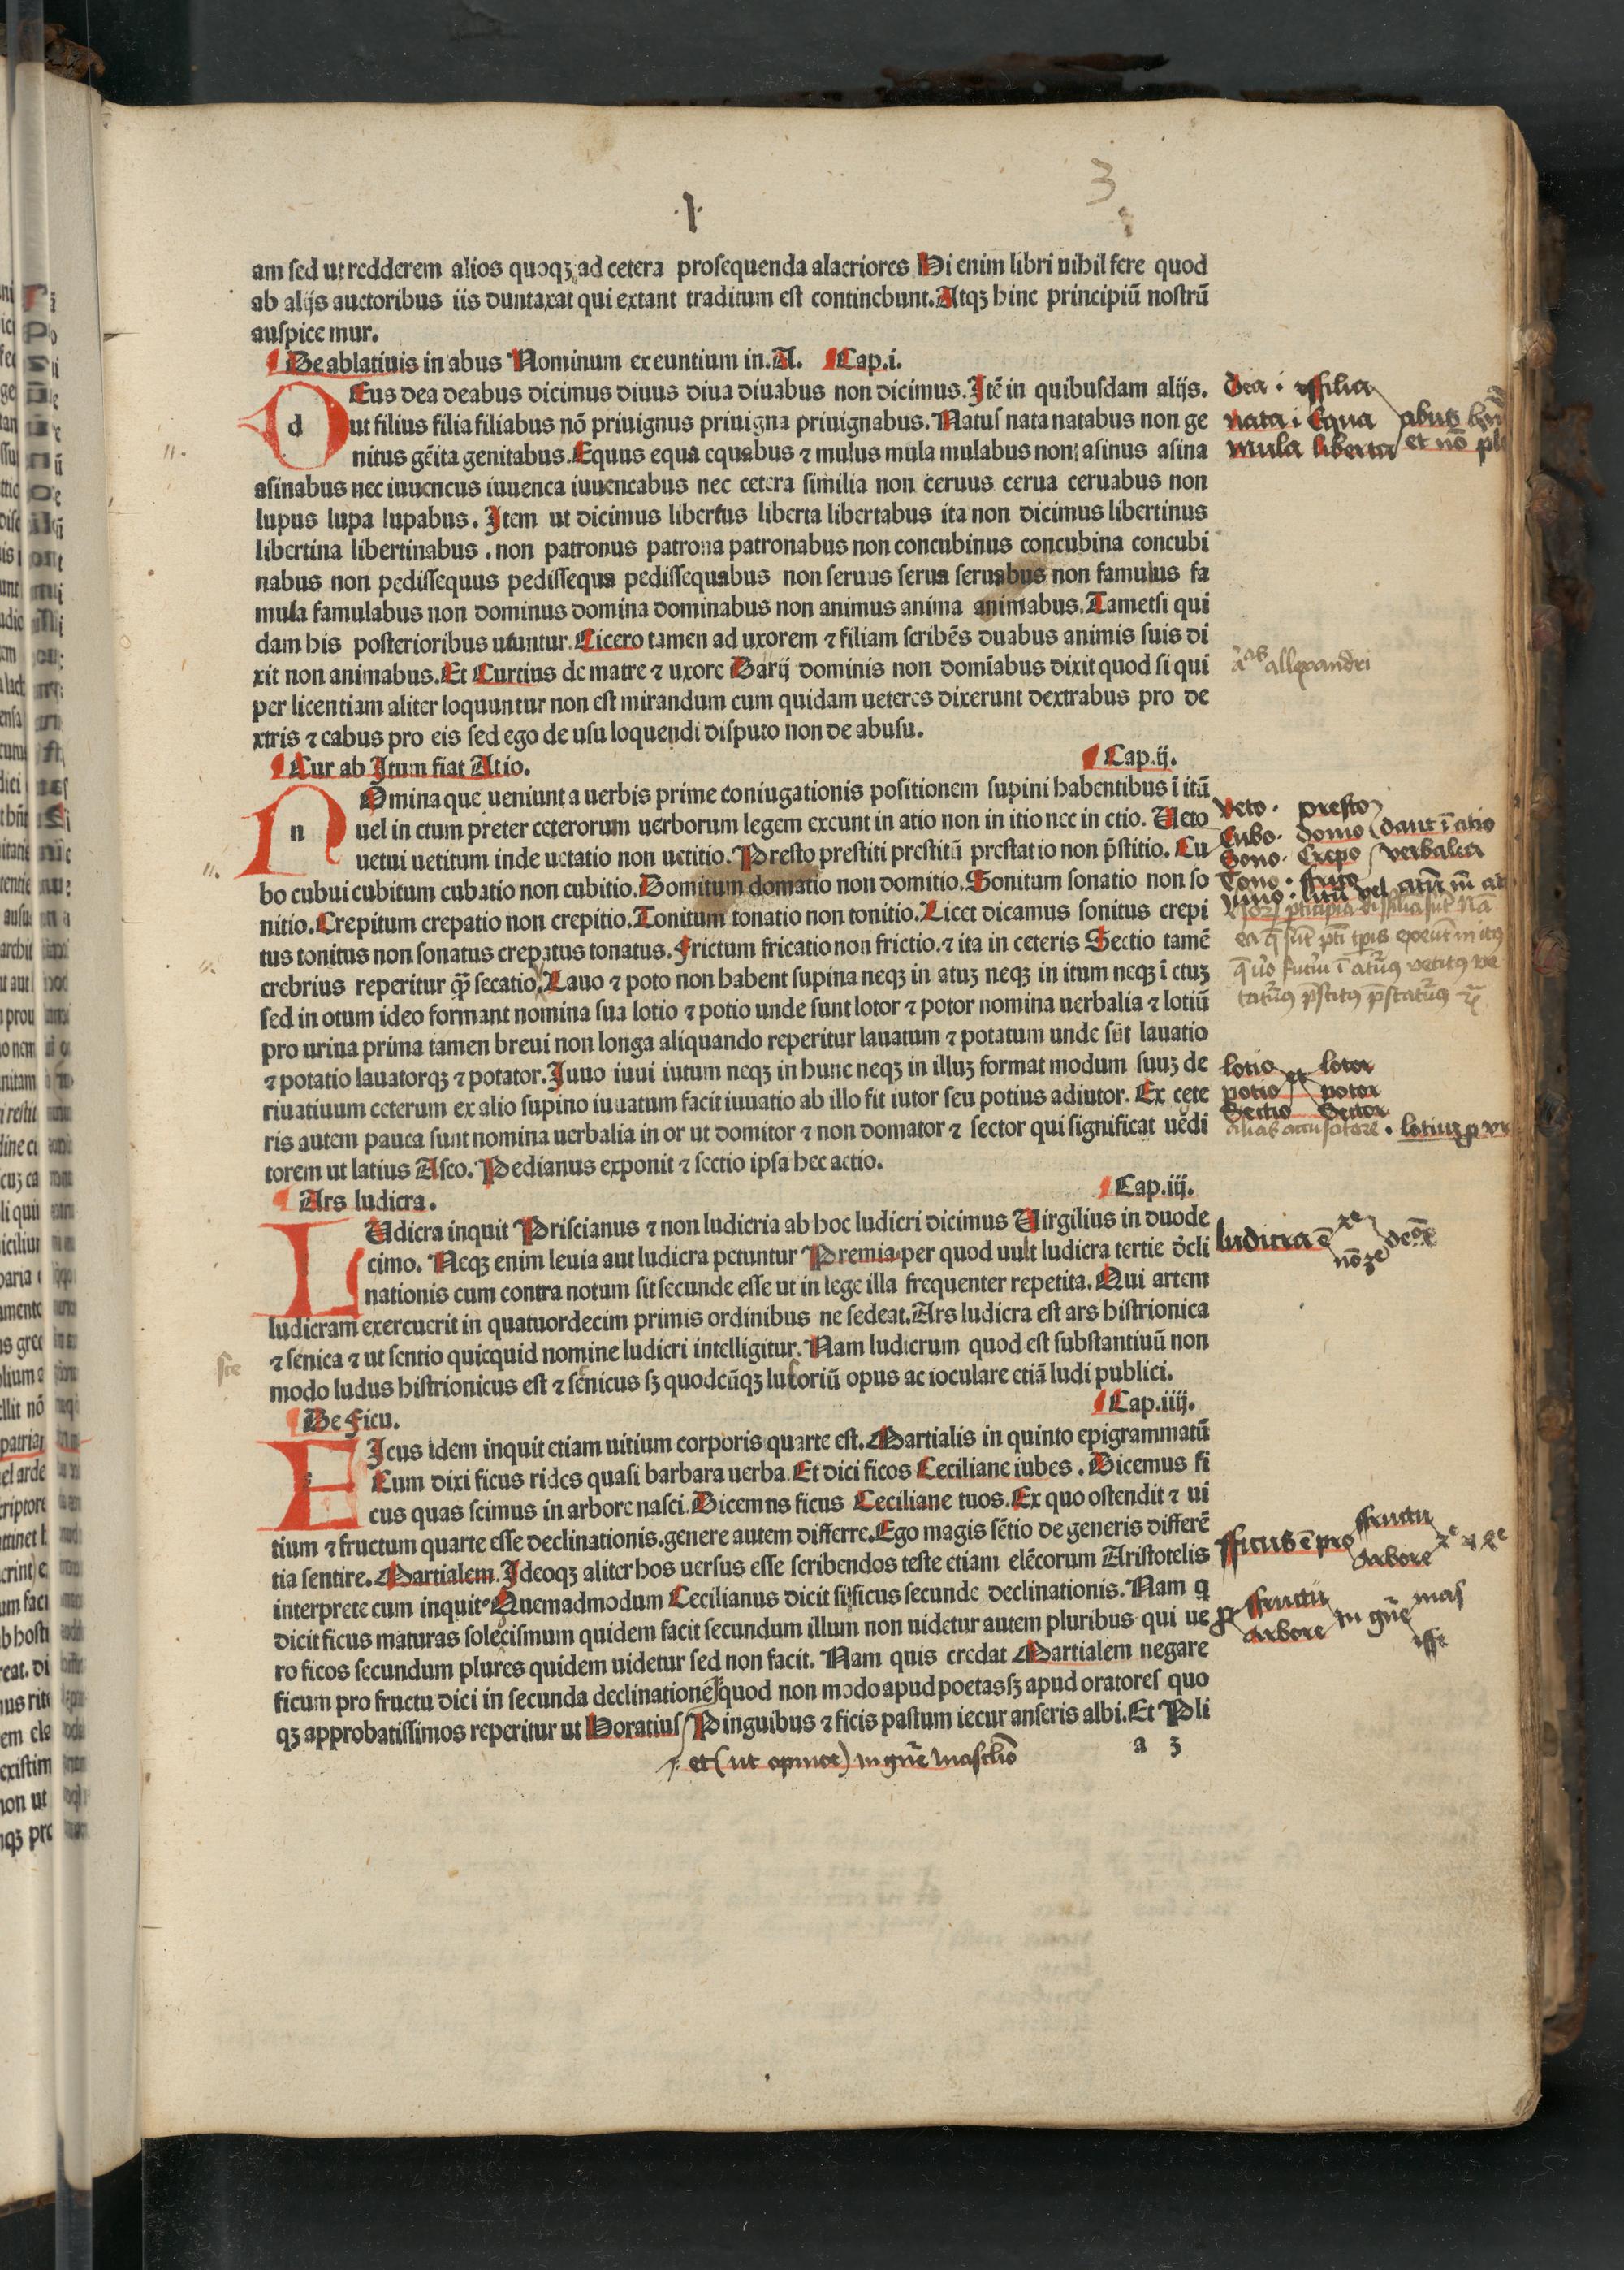 .I.
3
am sed ut redderem alios quoqꝫ ad cetera prosequenda alacriores Hi enim libri nihil fere quod
ab alijs auctoribus iis duntaxat qui extant traditum est continebunt. Atqꝫ hinc principiũ nostrũ
auspice mur.
De ablatiuis in abus Nominum exeuntium in. A. Cap.i.
dEus dea deabus dicimus diuus diua diuabus non dicimus. Itẽ in quibusdam alijs.
ut filius filia filiabus nõ priuignus priuigna priuignabus. Natus nata natabus non ge
nitus gẽita genitabus. Equus equa equabus ⁊ mulus mula mulabus non asinus asina
asinabus nec iuuencus iuuenca iuuencabus nec cetera similia non ceruus cerua ceruabus non
lupus lupa lupabus. Item ut dicimus libertus liberta libertabus ita non dicimus libertinus
libertina libertinabus . non patronus patrona patronabus non concubinus concubina concubi
nabus non pedissequus pedissequa pedissequabus non seruus serua seruabus non famulus fa
mula famulabus non dominus domina dominabus non animus anima animabus. Tametsi qui
dam his posterioribus utuntur. Cicero tamen ad uxorem ⁊ filiam scribẽs duabus animis suis di
xit non animabus. Et Curtius de matre ⁊ uxore Darij dominis non domĩabus dixit quod si qui
per licentiam aliter loquuntur non est mirandum cum quidam ueteres dixerunt dextrabus pro de
xtris ⁊ eabus pro eis sed ego de usu loquendi disputo non de abusu.
Cur ab Itum fiat Atio. Cap.ij.
nOmina que ueniunt a uerbis prime coniugationis positionem supini habentibus ĩ itũ
uel in ctum preter ceterorum uerborum legem exeunt in atio non in itio nec in ctio. Ueto
uetui uetitum inde uetatio non uetitio. Presto prestiti prestitũ prestatio non p̃stitio. Cu
bo cubui cubitum cubatio non cubitio. Domitum domatio non domitio. Sonitum sonatio non so
nitio. Crepitum crepatio non crepitio. Tonitum tonatio non tonitio. Licet dicamus sonitus crepi
tus tonitus non sonatus crepatus tonatus. Frictum fricatio non frictio. ⁊ ita in ceteris Sectio tamẽ
crebrius reperitur q̃ꝫ secatio. Lauo ⁊ poto non habent supina neqꝫ in atuꝫ neqꝫ in itum neqꝫ ĩ ctuꝫ
sed in otum ideo formant nomina sua lotio ⁊ potio unde sunt lotor ⁊ potor nomina uerbalia ⁊ lotiũ
pro urina prima tamen breui non longa aliquando reperitur lauatum ⁊ potatum unde sũt lauatio
⁊ potatio lauatorqꝫ ⁊ potator. Iuuo iuui iutum neqꝫ in hunc neqꝫ in illuꝫ format modum suuꝫ de
riuatiuum ceterum ex alio supino iuuatum facit iuuatio ab illo fit iutor seu potius adiutor. Ex cete
ris autem pauca sunt nomina uerbalia in or ut domitor ⁊ non domator ⁊ sector qui significat uẽdi
torem ut latius Asco. Pedianus exponit ⁊ sectio ipsa hec actio.
Ars ludicra. Cap.iij.
LUdicra inquit Priscianus ⁊ non ludicria ab hoc ludicri dicimus Uirgilius in duode
cimo. Neqꝫ enim leuia aut ludicra petuntur Premia per quod uult ludicra tertie d̉cli
nationis cum contra notum sit secunde esse ut in lege illa frequenter repetita. Qui artem
ludicram exercuerit in quatuordecim primis ordinibus ne sedeat. Ars ludicra est ars histrionica
⁊ senica ⁊ ut sentio quicquid nomine ludicri intelligitur. Nam ludicrum quod est substantiuũ non
modo ludus histrionicus est ⁊ senicus sꝫ quodcũqꝫ lusoriũ opus ac ioculare etiã ludi publici.
De Ficu. Cap.iiij.
FIcus idem inquit etiam uitium corporis quarte est. Martialis in quinto epigrammatũ
Cum dixi ficus rides quasi barbara uerba. Et dici ficos Ceciliane iubes . Dicemus fi
cus quas scimus in arbore nasci. Dicemus ficus Ceciliane tuos. Ex quo ostendit ⁊ ui
tium ⁊ fructum quarte esse declinationis. genere autem differre. Ego magis sẽtio de generis differẽ
tia sentire. Martialem. Ideoqꝫ aliter hos uersus esse scribendos teste etiam elẽcorum Aristotelis
interprete cum inquit. Quemadmodum Cecilianus dicit si ficus secunde declinationis. Nam q
dicit ficus maturas solecismum quidem facit secundum illum non uidetur autem pluribus qui ue
ro ficos secundum plures quidem uidetur sed non facit. Nam quis credat Martialem negare
ficum pro fructu dici in secunda declinatione quod non modo apud poetas sꝫ apud oratores quo
qꝫ approbatissimos reperitur ut Horatius Pinguibus ⁊ ficis pastum iecur anseris albi. Et Pli
a 3
dea . filia
nata . equa
mula liberta
abus
et nõ
allexandri
veto . presto
Cubo . domo dant ĩ atio
Sono . Crepo verbalia
Tono . frico
lotio et lotor
potio potor
Sectio Sector
ludicra ẽ
ffructu
ficus ẽ pro
Arbore
ffructu
Arbore
mas